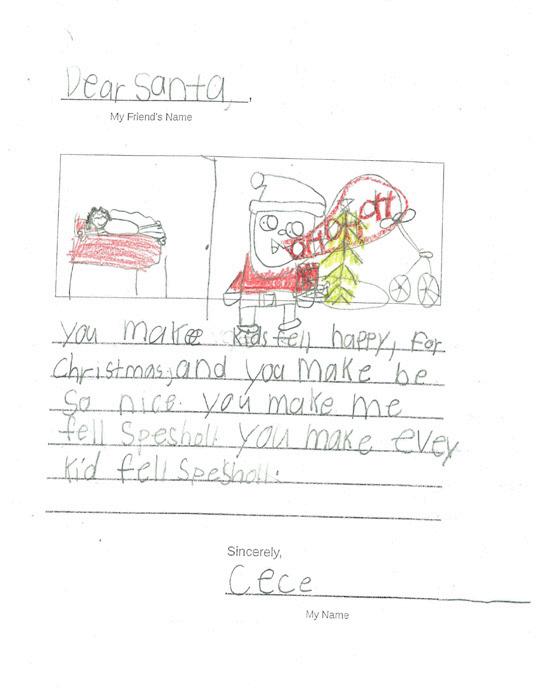 Dear Santa,
My Friend's Name
OHOHOH
you make kids fell happy, For
Christmas, and you make be
So nice. you make me
fell Spesholl you make evey
kid fell Spesholl.
Sincerely,
Cece
My Name